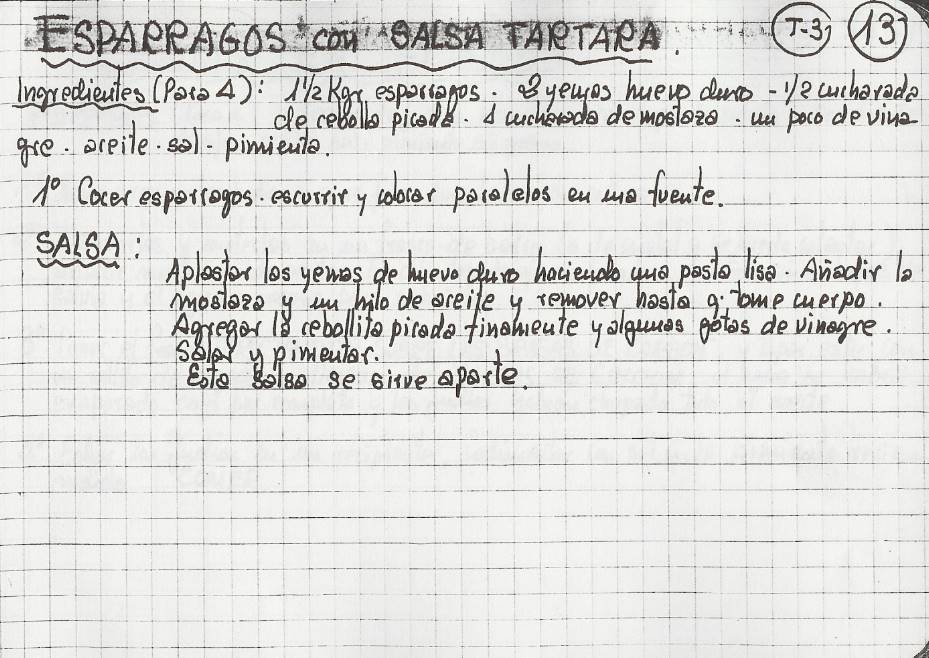 ESPARRAGOS con SALSA TARTARA. T-3 13
Ingredientes (Para 4): 1 1/2 Kgr esparragos. 2 yemas huevo duro - 1/2 cucharada
de cebolla picada. 1 cucharada de mostaza. un poco de vina
gre. aceite. sal - pimienta.
1º Cocer esparragos. escurrir y colocar paralelos en una fuente.
SALSA:
Aplastar las yemas de huevo duro haciendo una pasta lisa. Añadir la
mostaza y un hilo de aceite y remover hasta q. tome cuerpo.
Agregar la cebollita picada finamente y algunas gotas de vinagre.
Salar y pimentar.
Esta salsa se sirve aparte.